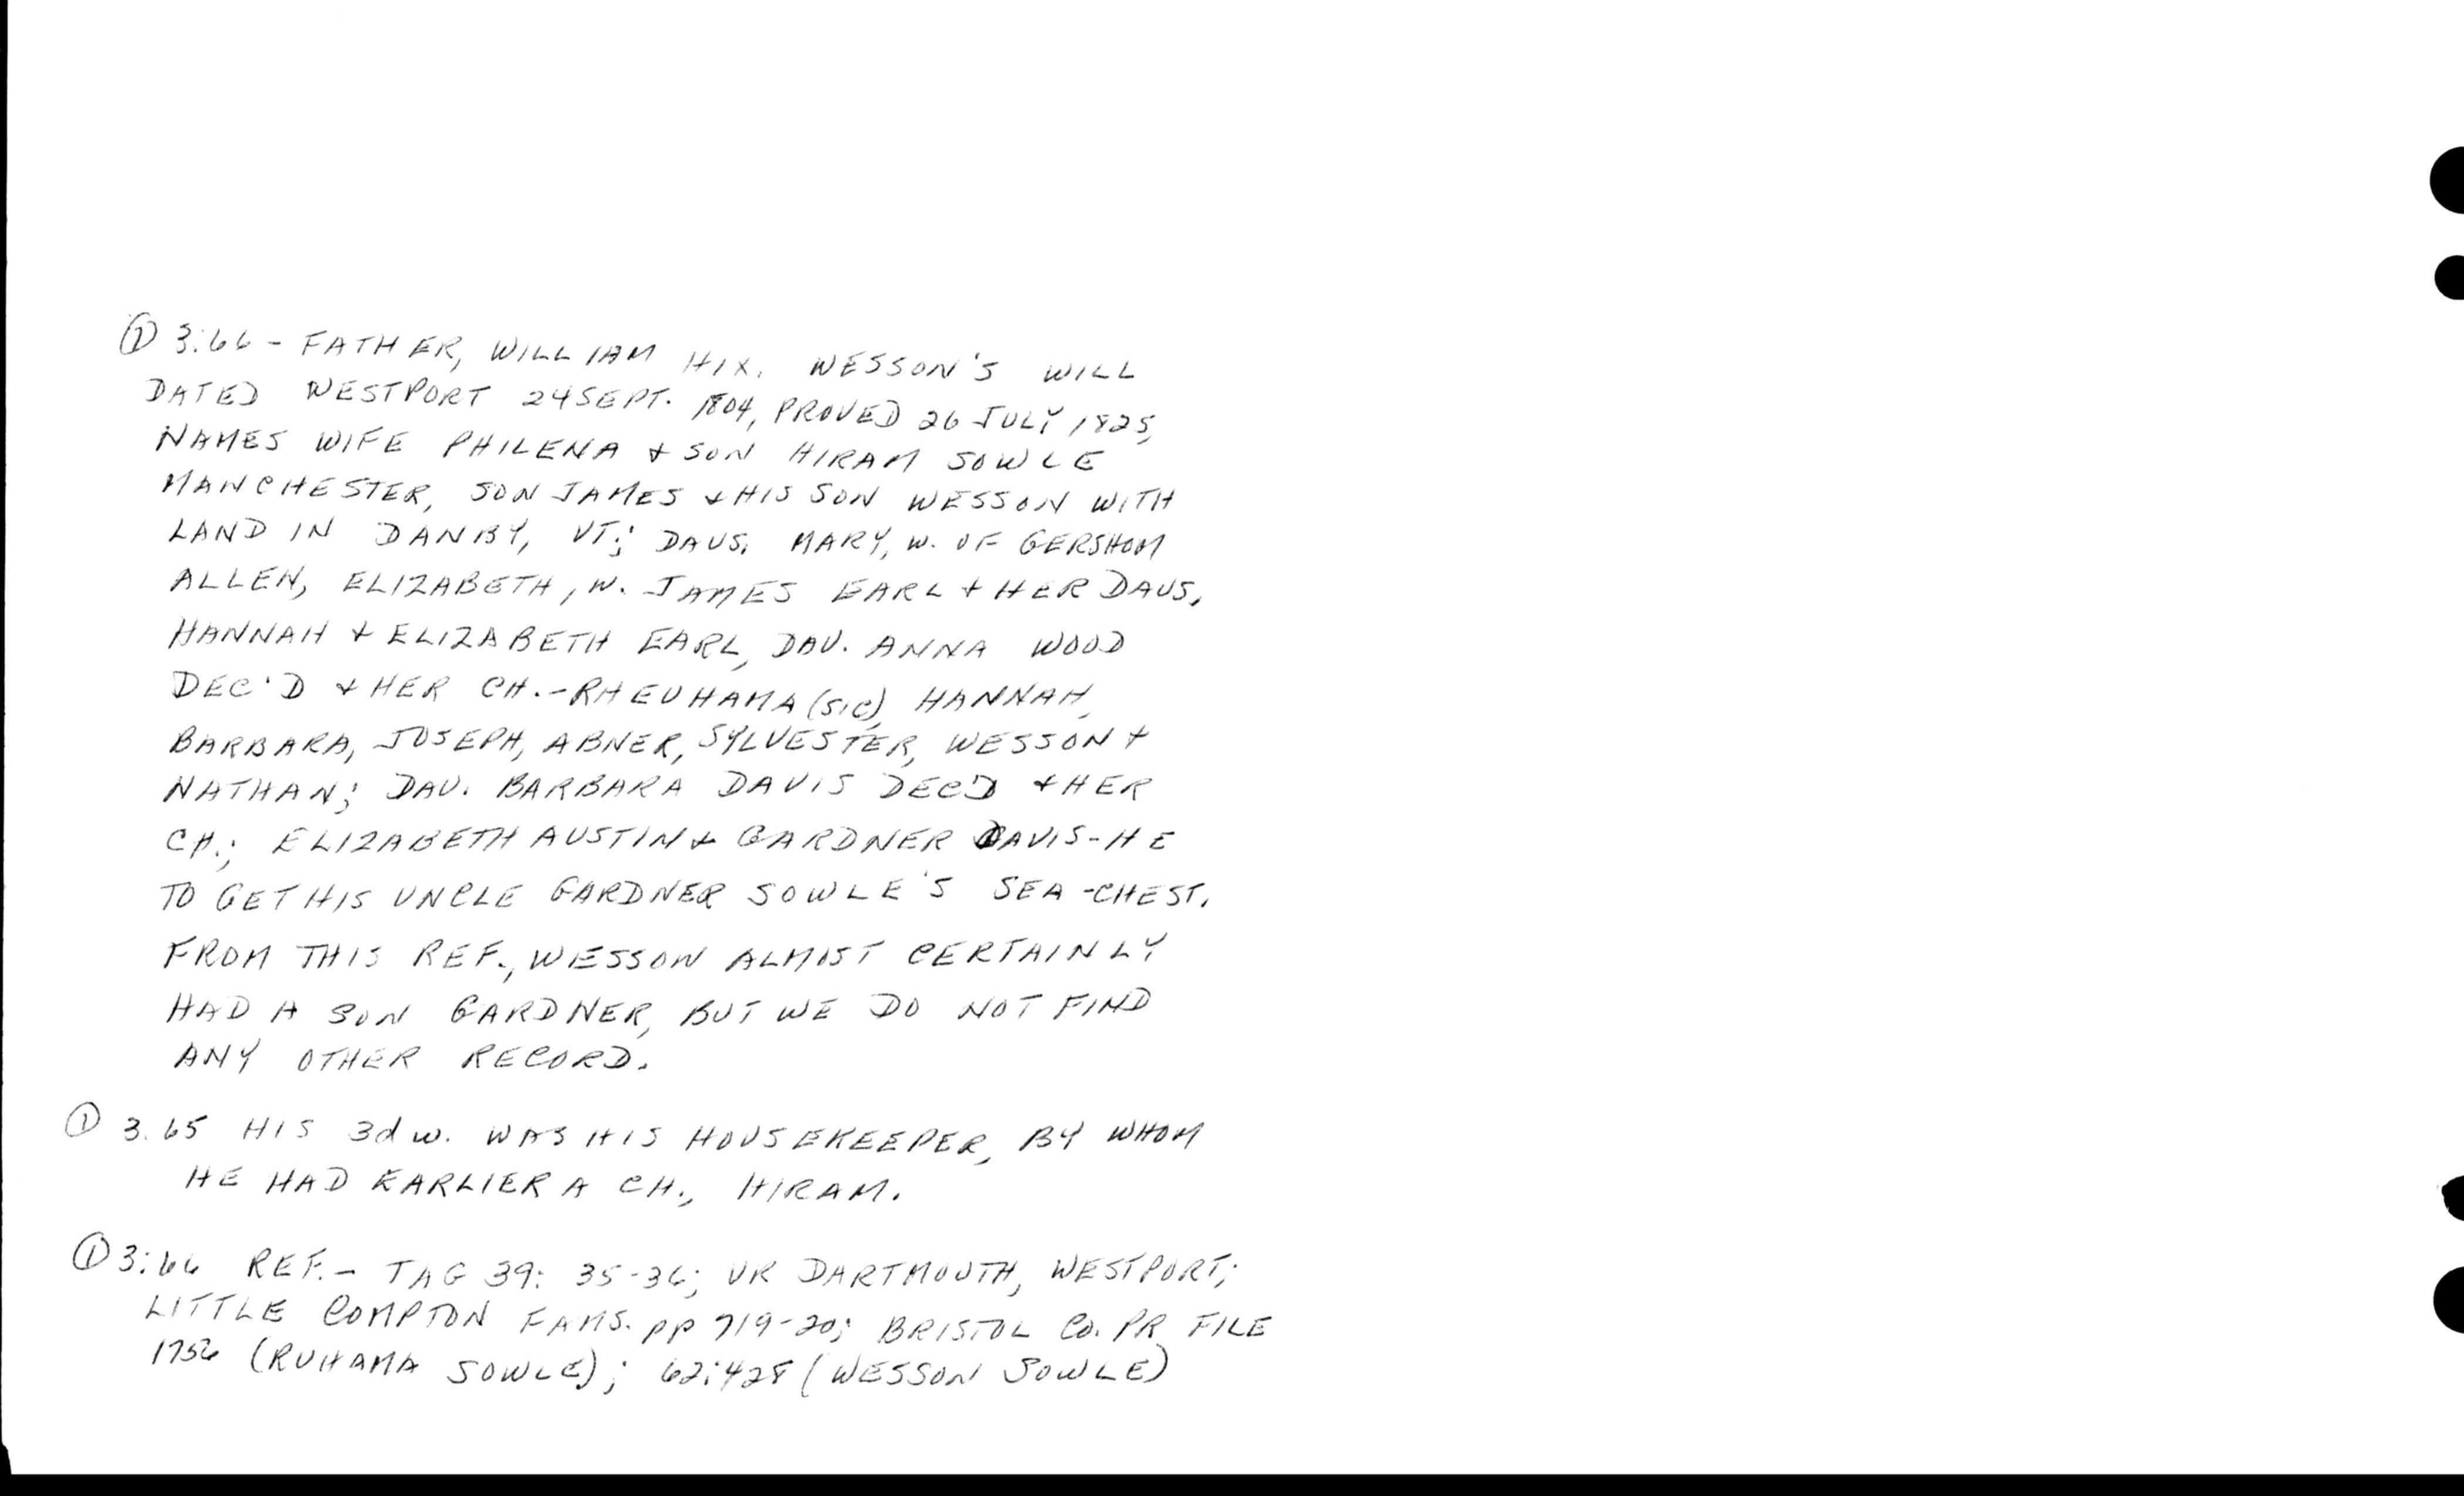 ① 3:66 - FATHER, WILLIAM HIX. WESSON'S WILL
DATED WESTPORT 24 SEPT. 1804, PROVED 26 JULY 1825,
NAMES WIFE PHILENA + SON HIRAM SOWLE
MANCHESTER, SON JAMES + HIS SON WESSON WITH
LAND IN DANBY, VT.; DAUS. MARY, W. OF GERSHOM
ALLEN, ELIZABETH, W. JAMES EARL + HER DAUS,
HANNAH + ELIZABETH EARL, DAU. ANNA WOOD
DEC'D + HER CH. - RHEUHAMA (SIC), HANNAH,
BARBARA, JOSEPH, ABNER, SYLVESTER, WESSON +
NATHAN; DAU. BARBARA DAVIS DEC'D + HER
CH.; ELIZABETH AUSTIN + GARDNER DAVIS - HE
TO GET HIS UNCLE GARDNER SOWLE'S SEA-CHEST.
FROM THIS REF., WESSON ALMOST CERTAINLY
HAD A SON GARDNER, BUT WE DO NOT FIND
ANY OTHER RECORD.
① 3.65 HIS 3d w. WAS HIS HOUSEKEEPER, BY WHOM
HE HAD EARLIER A CH., HIRAM.
① 3:66 REF. - TAG 39: 35-36; VR DARTMOUTH, WESTPORT;
LITTLE COMPTON FAMS. pp 719-20; BRISTOL CO. PR FILE
1756 (RUHAMA SOWLE); 62:428 (WESSON SOWLE)